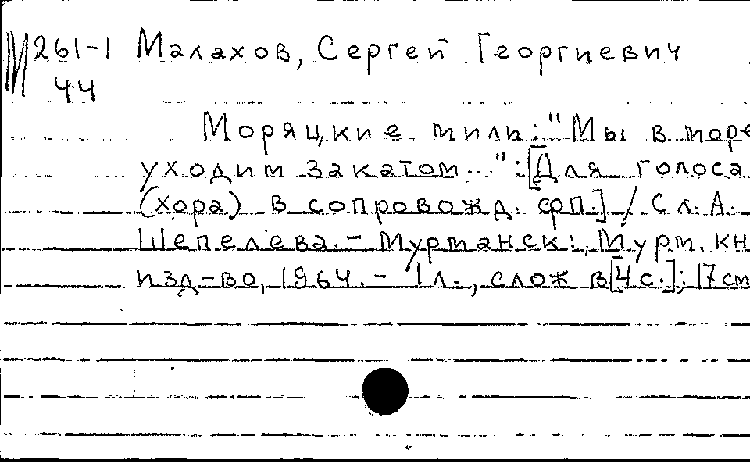 М261-1 Малахов, Сергей Георгиевич
44
Моряцкие мили: "Мы в море
уходим закатом..." : [Для голоса
(хора) в сопровожд. ф-п.] / Сл. А.
Шепелева. - Мурманск: Мурм. кн
изд-во, 1964. - 1 л., слож в [4 с.]; 17 см